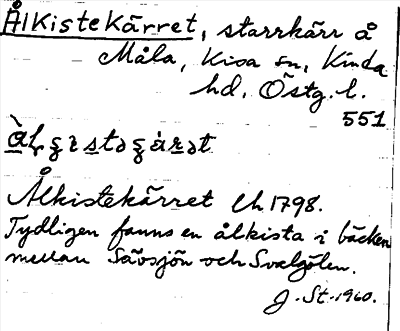 Ålkistekärret, starrkärr å
Måla, Kisa sn, Kinda
hd, Östg. l.
551
Ålkistekärret Lh 1798.
Tydligen fanns en ålkista i bäcken
mellan Sävsjön och Svalgölen.
J. St. 1960.